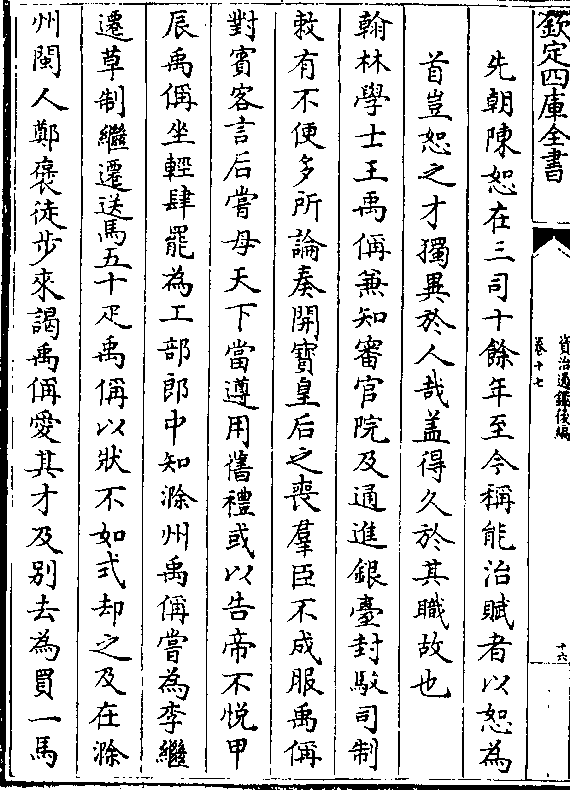 欽定四庫全書
資治通鑑後編
卷十七
十六
先朝陳恕在三司十餘年至今稱能治賦者以恕為
首豈恕之才獨異於人哉蓋得久於其職故也
翰林學士王禹偁兼知審官院及通進銀臺封駁司制
敕有不便多所論奏開寶皇后之喪羣臣不成服禹偁
對賓客言后嘗母天下當遵用舊禮或以告帝不悅甲
辰禹偁坐輕肆罷為工部郎中知滁州禹偁嘗為李繼
遷草制繼遷送馬五十疋禹偁以狀不如式却之及在滁
州閩人鄭褒徒步來謁禹偁愛其才及別去為買一馬